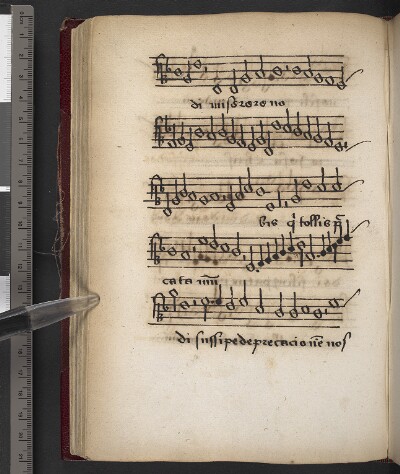 di miserere no
bis qi tollis p̄
cata mū
di sussipe deprecacionē nos